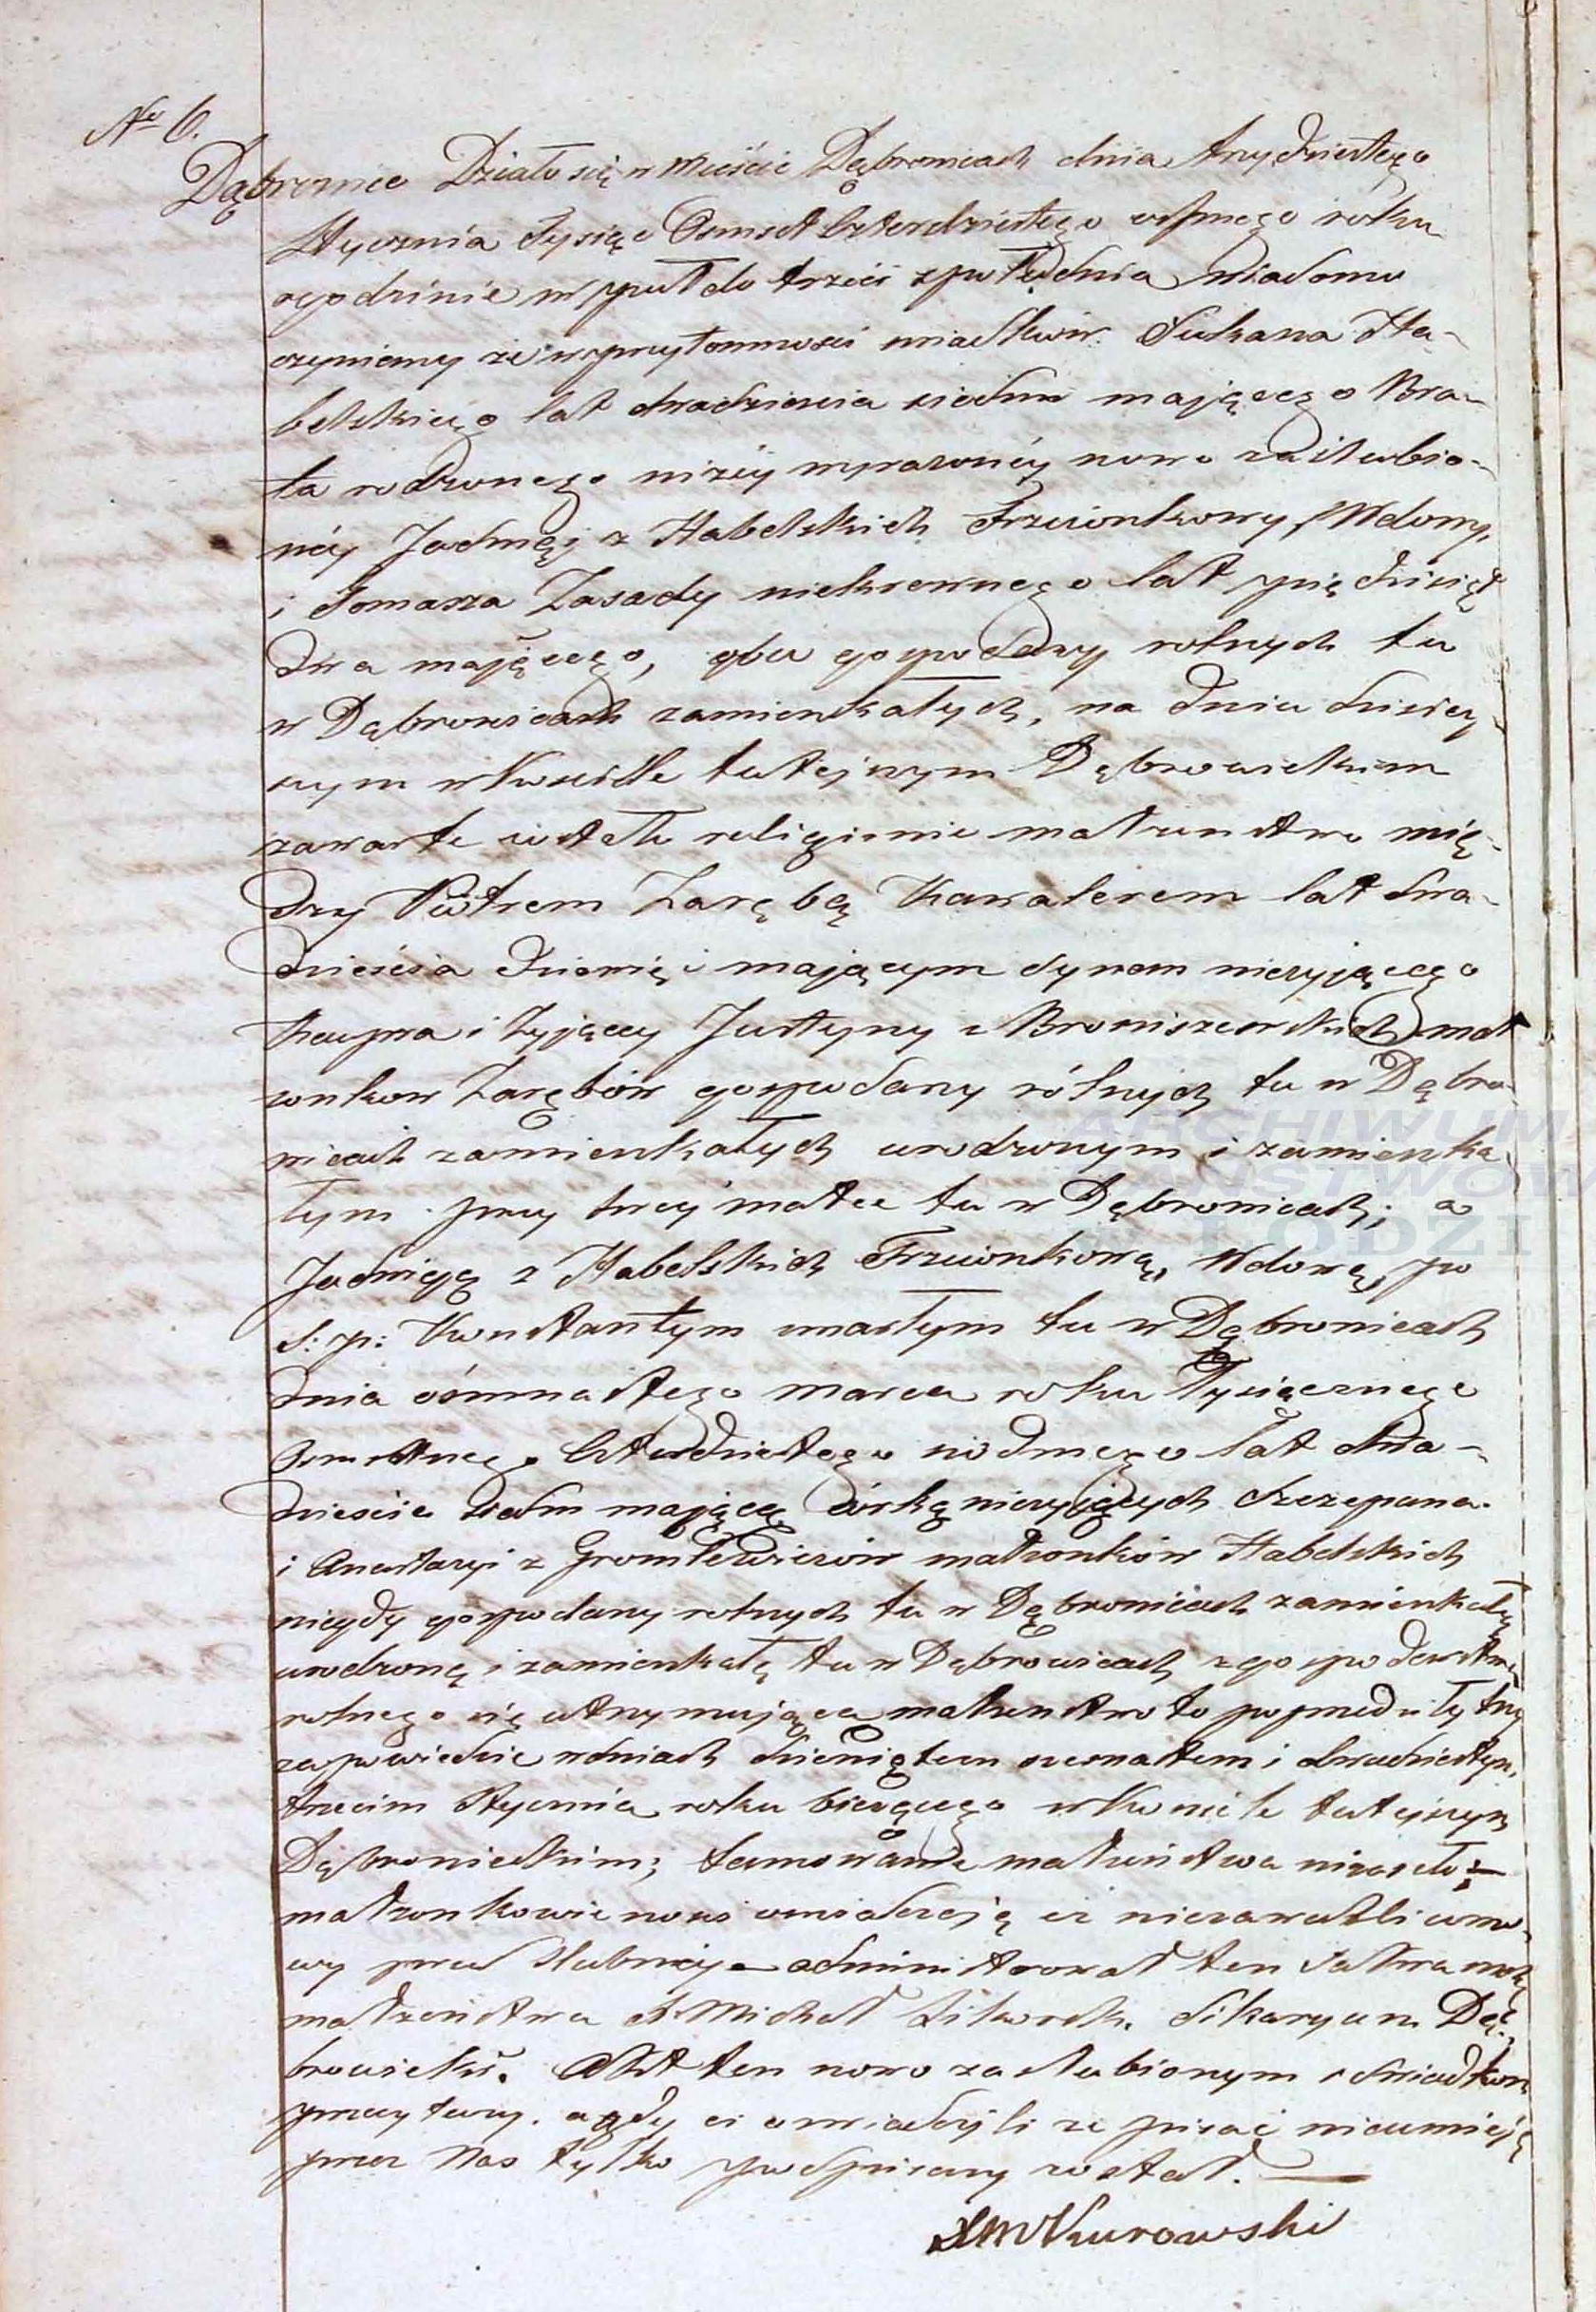 No 6.
Dąbrowice Działo się w Mieście Dąbrowicach dnia trzydziestego
Stycznia tysiąc Osmset Czterdziestego osmego roku
ogodzinie w puł do trzeci z południa Wiadomo
czyniemy że w przytomności swiadków Łukasza Ha-
belskiego lat dwadzieścia siedm mającego Bra-
ta rodzonego niżéj wyrażonéj nowo zaślubio-
néj Jadwigi z Habelskich Trzcionkowy, Wdowy,
i Tomasza Zasady niekrewnego lat pięćdziesiąt
dwa mającego, obu gospodarzy rolnych tu
w Dąbrowicach zamieszkałych, na dniu dzisiej-
szym w Kosciele tutejszym Dąbrowickim
zawarte zostało religijnie małżenstwo mię-
dzy Piotrem Zarębą Kawalerem lat dwa-
dzieścia dziewięć mającym synem nieżyjącego
Kacpra i żyjący Justyny z Broniszewskich mał
żonkow Zarębów gospodarzy rólnych tu w Dąbro-
wicach zamieszkałych urodzonym i zamieszka
łym przy tréj matce tu w Dąbrowicach; a
Jadwigą z Habelskich Trzcionkową, Wdową, po
ś: p: Konstantym zmarłym tu w Dąbrowicach
dnia ósmnastego marca roku Tysiącznego
Osmsetnego Czterdziestego siódmego lat dwa-
dzieścia siedm mającą córką nieżyjących Szczepana
i Anastazyi z Gromlewiczów małżonków Habelskich
niegdy gospodarzy rolnych tu w Dąbrowicach zamieszkały
urodzoną i zamieszkałą tu w Dąbrowicach z gospodarstwa
rolnego się utrzymująca małżenstwo to poprzedziły trzy
zapowiedzie w dniach dziewiątem szesnastem i dwudziestym
trzecim Stycznia roku bieżącego w Kosciele tutejszym
Dąbrowieckim; tamowanie małżeństwa niezaszło; —
małżonkowie nowi oswiadczają iż niezawarli umo-
wy przed slubnéj — administrował ten Sakrament
małżeństwa X Michał Sikorsk. Wikaryusz Dą-
browicki. Akt ten nowo zaslubionym i Świadkom
przeczytany. a gdy ci oswiadczyli ze pisać nieumieją
przez Nas tylko podpisany został. —
XMKurowski
ARCHIWUM
PAŃSTWOW
W ŁODZI